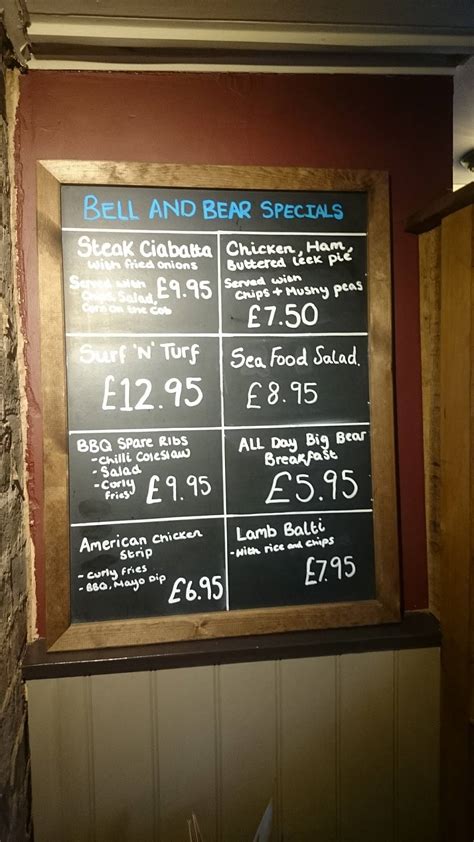 BELL AND BEAR SPECIALS
Steak Ciabatta
with fried onions
Served with
Chips, Salad,
Corn on the Cob
£9.95
Chicken, Ham,
Buttered leek pie
Served with
Chips + Mushy peas
£7.50
Surf 'N' Turf
£12.95
Sea Food Salad.
£8.95
BBQ Spare Ribs
- Chilli Coleslaw
- Salad
- Curly
fries
£9.95
ALL Day Big Bear
Breakfast
£5.95
American Chicken
Strip
- Curly fries
- BBQ, Mayo Dip
£6.95
Lamb Balti
- With rice and chips
£7.95